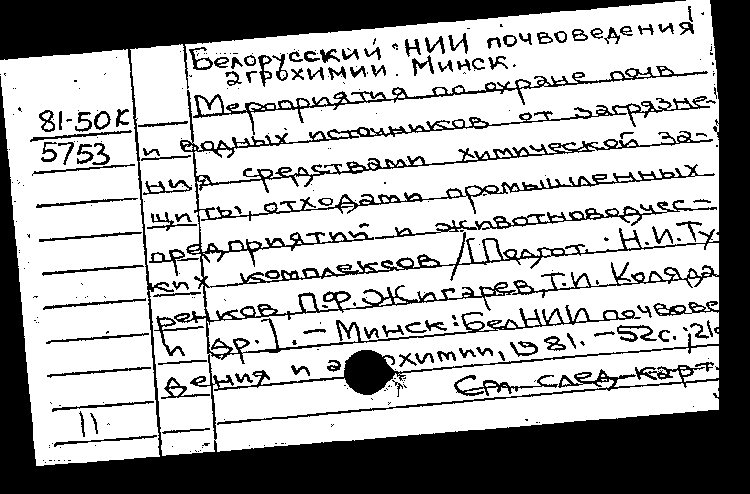 Белорусский НИИ почвоведения
агрохимии. Минск.
Мероприятия по охране почв
81-50К
и водных источников от загрязне-
5753
ния средствами химической за-
щиты, отходами промышленных
предприятий и животноводчес-
ких комплексов / [Подгот.: Н.И.Ту-
ренков, П.Ф.Жигарев, Т.И. Коляда
и др.]. - Минск: БелНИИ почвове
дения и а рохимии, 1981. - 52с.; 21
См. след. карт.
11